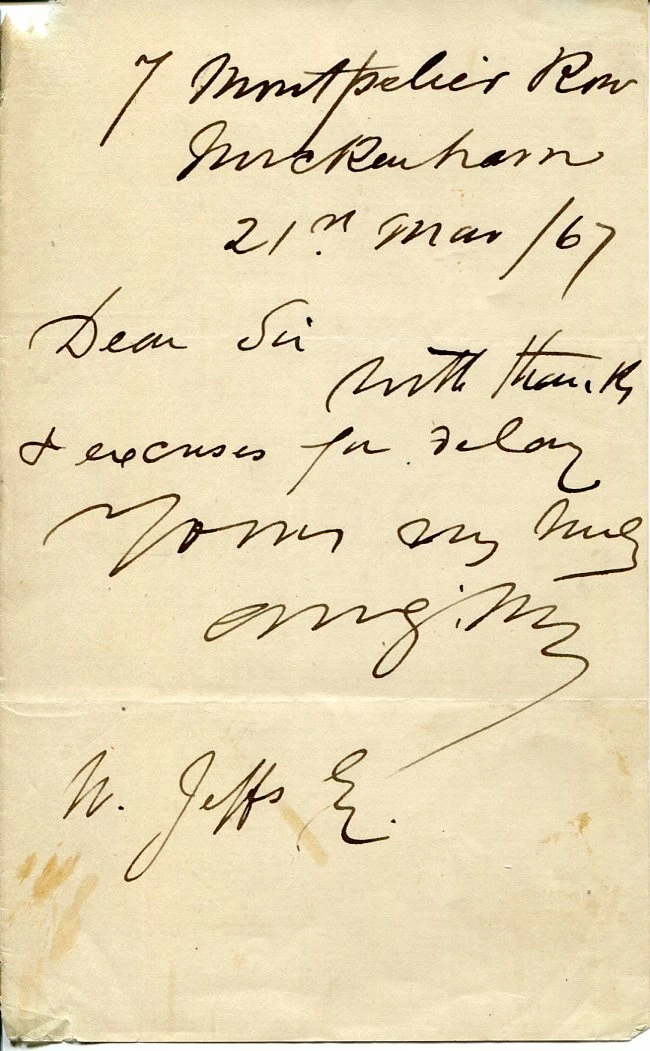 7 Montpelier Row
Twickenham
21st Mar /67
Dear Sir
with thanks
& excuses for delay
Yours very truly
W. Jeffs Esq.